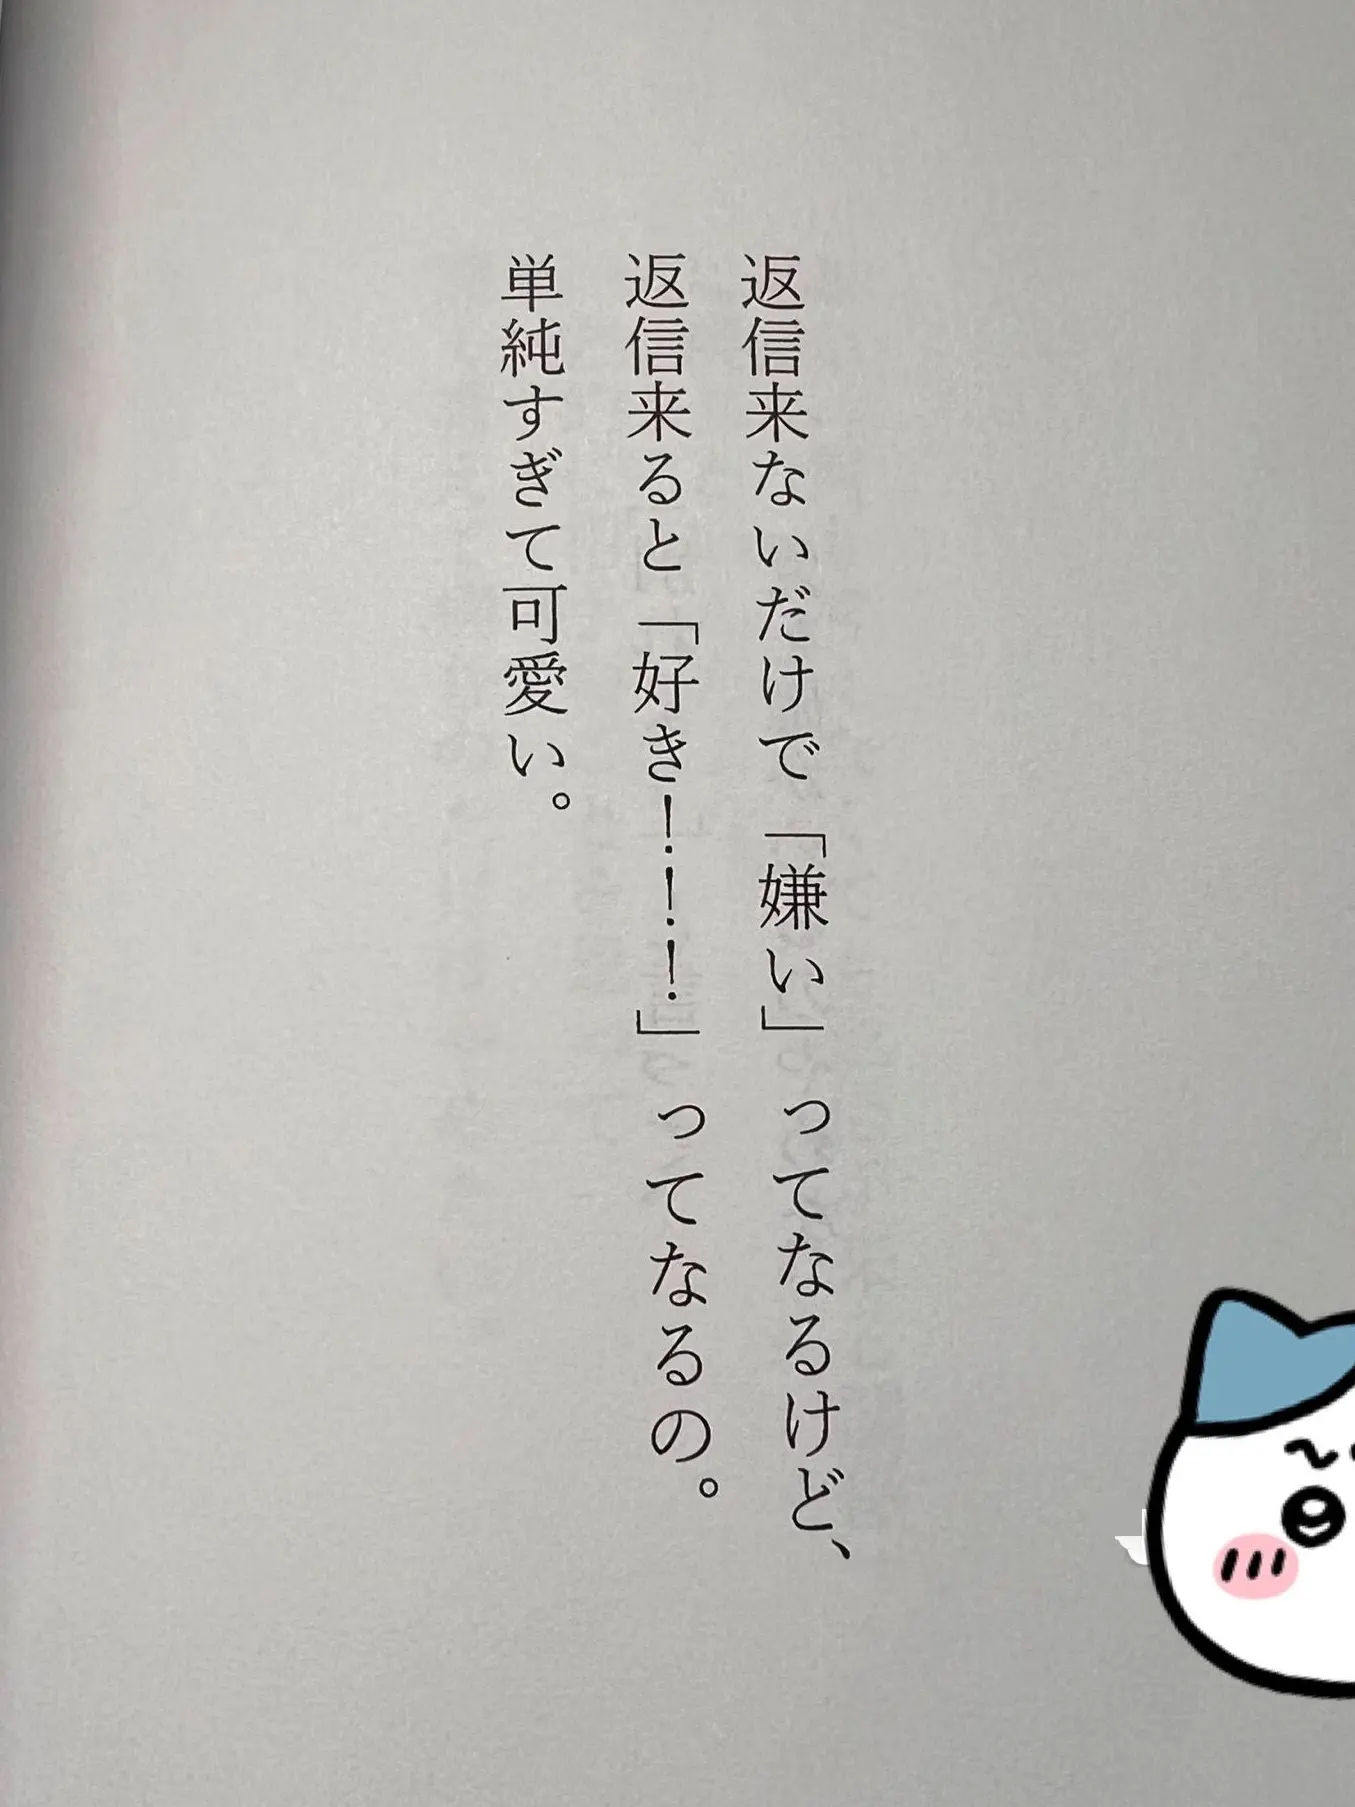 返信来ないだけで「嫌い」ってなるけど、
返信来ると「好き！！！」ってなるの。
単純すぎて可愛い。